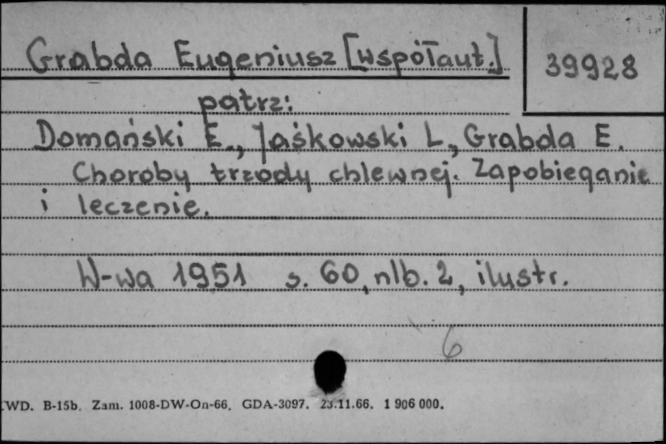 Grabda Eugeniusz [współaut.]
39928
patrz:
Domański E., Jaśkowski L, Grabda E.
Choroby trzody chlewnej. Zapobieganie
i leczenie.
W-wa 1951 s. 60, nlb. 2, ilustr.
6
WD. B-15b. Zam. 1008-DW-On-66. GDA-3097. 23.11.66. 1 906 000.